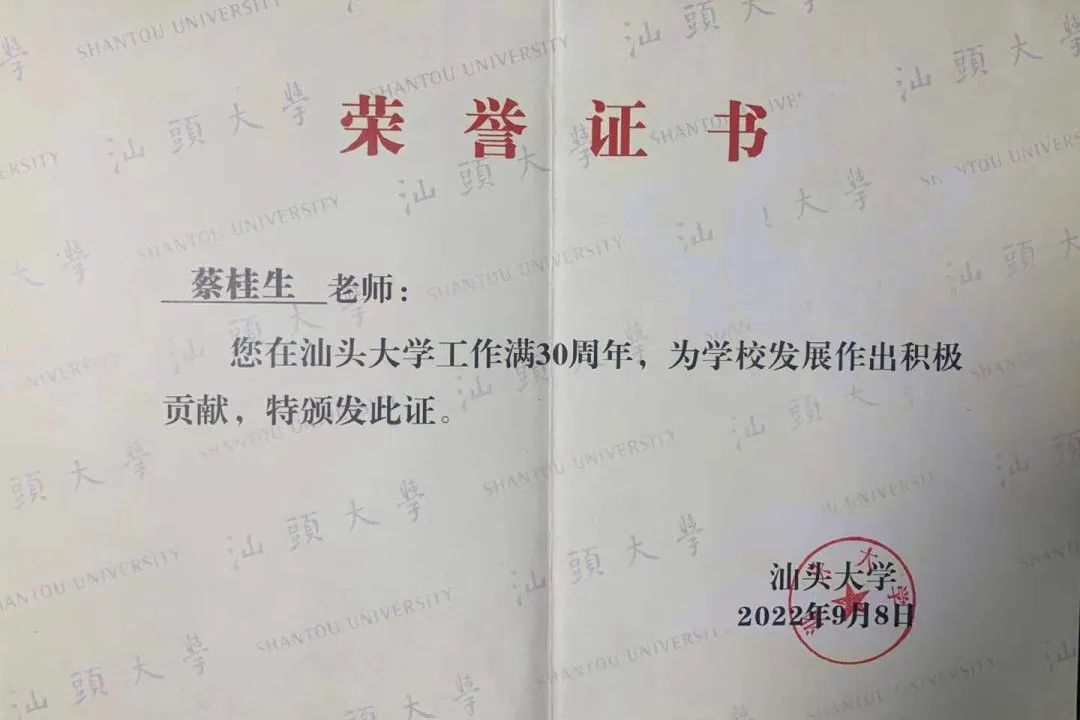 荣誉证书
蔡桂生 老师：
您在汕头大学工作满30周年，为学校发展作出积极
贡献，特颁发此证。
汕头大学
2022年9月8日
汕头大学
汕頭大學
SHANTOU UNIVERSITY